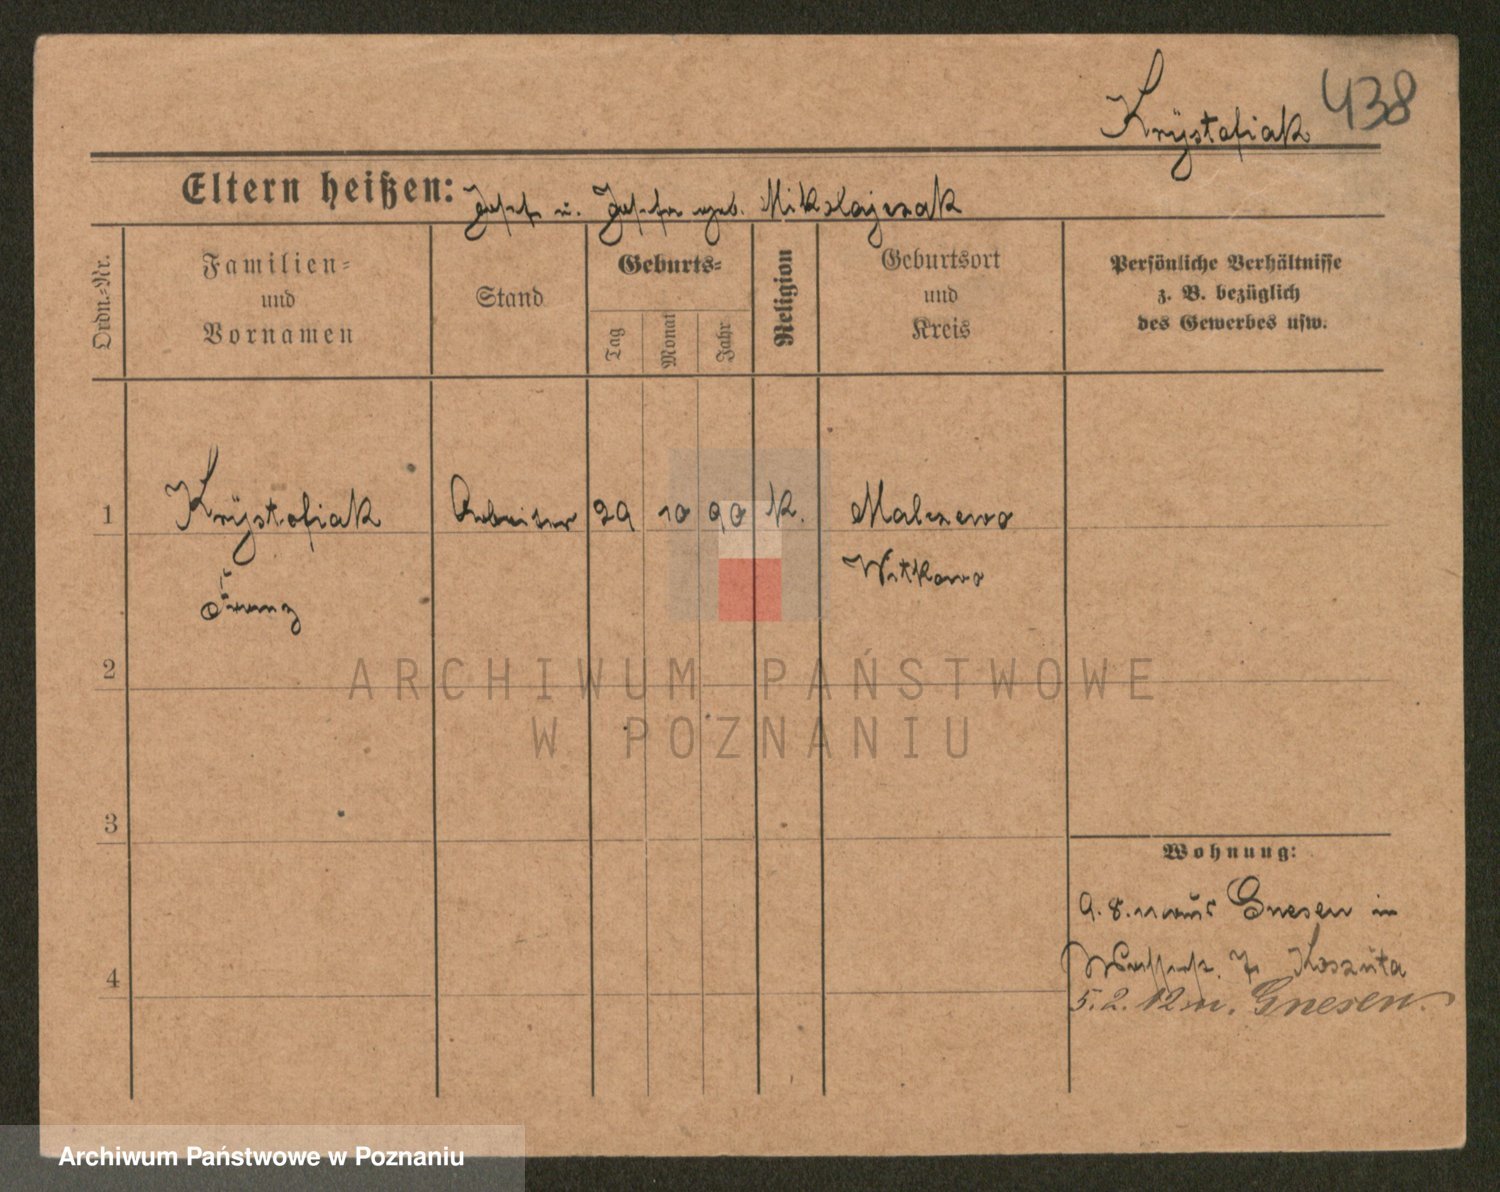 Krystofiak 438
Eltern heißen: Josef u. Josefa geb. Mikolajczak
Ordn.-Nr.
Familien-
und
Vornamen
Stand
Geburts-
Tag
Monat
Jahr
Religion
Geburtsort
und
Kreis
Persönliche Verhältnisse
z. B. bezüglich
des Gewerbes usw.
1 Krystofiak Arbeiter 29 10 90 K. Malczewo
Franz Witkowo
2
ARCHIWUM PAŃSTWOWE
W POZNANIU
3
Wohnung:
9. 8. 11 aus Gnesen in
7 Koszuta
4
5. 2. 12 n. Gnesen.
Archiwum Państwowe w Poznaniu